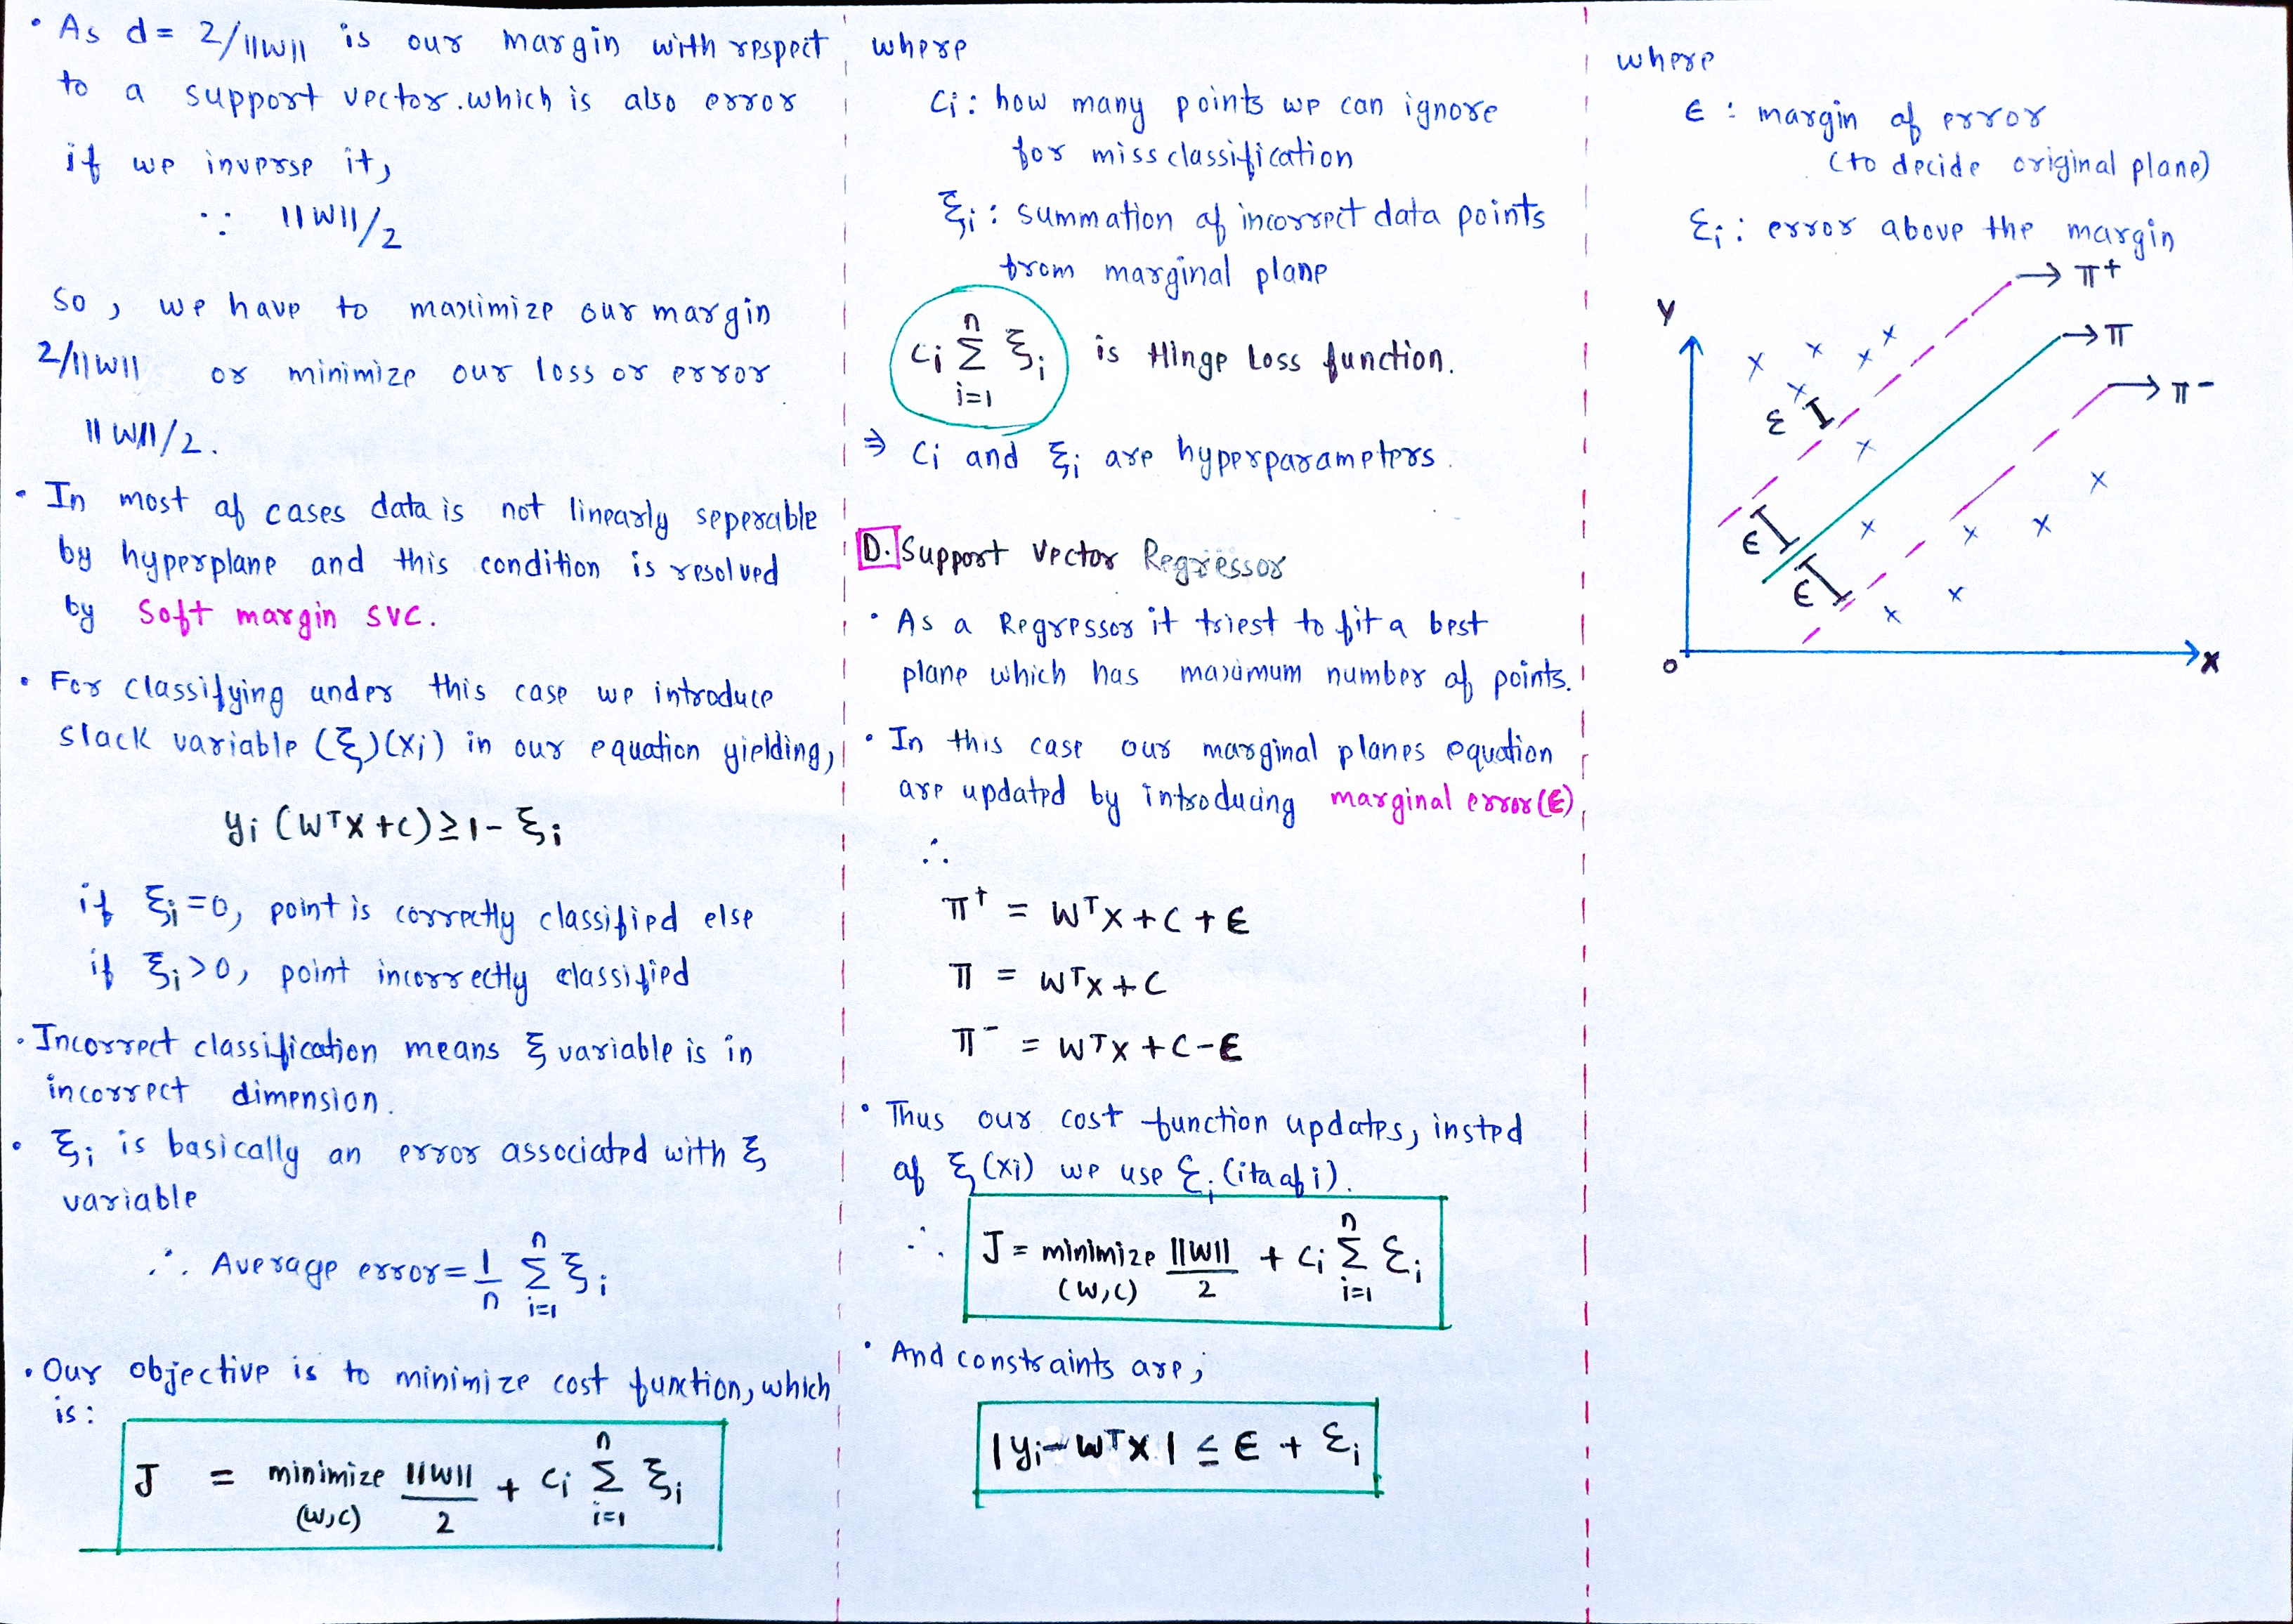 • As d = 2/||W|| is our margin with respect
to a support vector. which is also error
if we inverse it,
∵ ||W||/2
So, we have to maximize our margin
2/||W|| or minimize our loss or error
||W||/2.
• In most of cases data is not linearly seperable
by hyperplane and this condition is resolved
by Soft margin SVC.
• For classifying under this case we introduce
slack variable (ξ)(xi) in our equation yielding,
yi (WᵀX + C) ≥ 1 - ξi
if ξi = 0, point is correctly classified else
if ξi > 0, point incorrectly classified
• Incorrect classification means ξ variable is in
incorrect dimension.
• ξi is basically an error associated with ξ
variable
∴ Average error = 1/n Σ(i=1 to n) ξi
• Our objective is to minimize cost function, which
is:
J = minimize (W,C) ||W||/2 + Ci Σ(i=1 to n) ξi
where
Ci : how many points we can ignore
for miss classification
ξi : summation of incorrect data points
from marginal plane
Ci Σ(i=1 to n) ξi is Hinge Loss function.
⇒ Ci and ξi are hyperparameters.
D. Support Vector Regressor
• As a Regressor it triest to fit a best
plane which has maximum number of points.
• In this case our marginal planes equation
are updated by introducing marginal error (ϵ)
∴
π⁺ = WᵀX + C + ϵ
π = WᵀX + C
π⁻ = WᵀX + C - ϵ
• Thus our cost function updates, insted
of ξ (xi) we use Ɛi (ita of i).
∴ J = minimize (W,C) ||W||/2 + Ci Σ(i=1 to n) Ɛi
• And constraints are,
|yi - WᵀX| ≤ ϵ + Ɛi
where
ϵ : margin of error
(to decide original plane)
Ɛi : error above the margin
π+
Y
π
π-
Ɛ
ϵ
ϵ
O
X